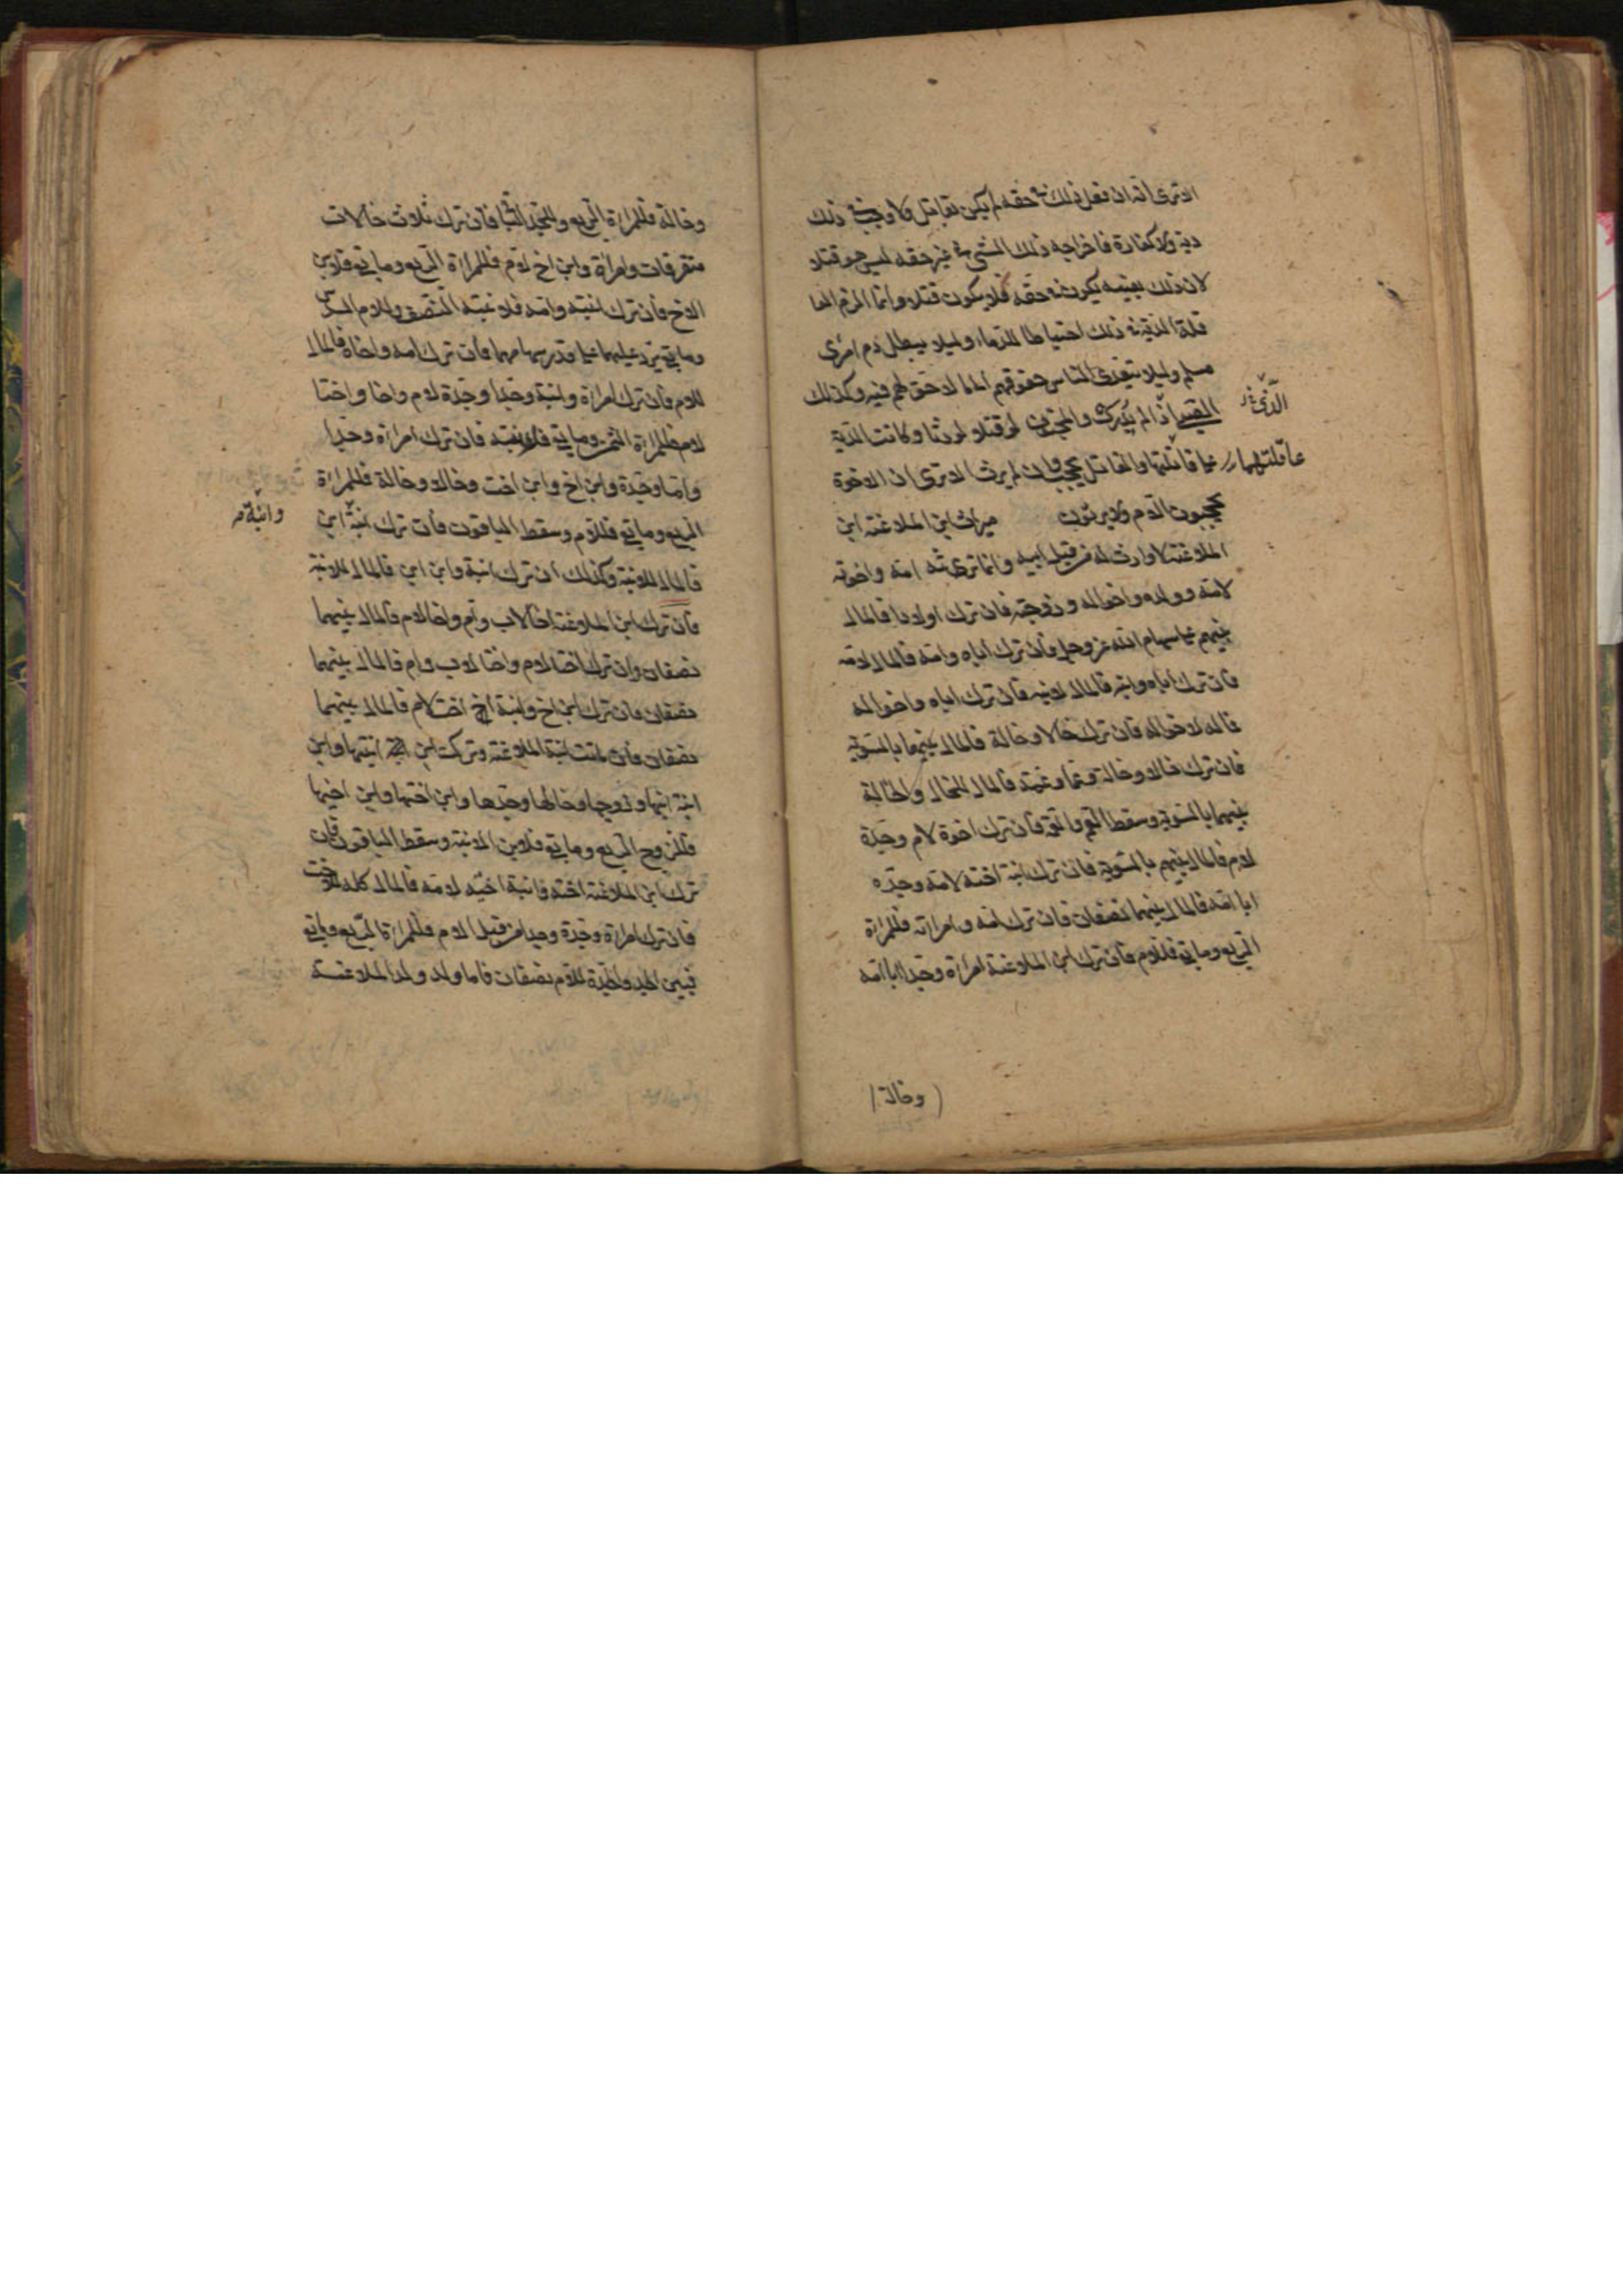 الا ترى انه ان فعل ذلك في حقه لم يكن بقاتل ولا وجب في ذلك
دية ولا كفارة فاخراجه ذلك الشيء في غير حقه ليس هو قتلا
لان ذلك بعينه يكون في حقه فلا يكون قتلا وانما الزم العا
قلة الدية في ذلك احتياطا للدماء ولئلا يبطل دم امرئ
مسلم ولئلا يتعدى الناس حقوقهم الى ما لا حق لهم فيه وكذلك
الصبي اذا لم يدرك والمجنون لو قتلا لورثا وكانت الدية
على عاقلتهما والقاتل يحجب وان لم يرث الا ترى ان الاخوة
يحجبون الام ولا يرثون ميراث ابن الملاعنة ابن
الملاعنة لا وارث له من قبل ابيه وانما ترثه امه واخوته
لامه وولده واخواله وزوجته فان ترك اولادا فالمال
بينهم على سهام الله عز وجل فان ترك اباه وامه فالمال لامه
فان ترك اباه وابنه فالمال لابنه فان ترك اباه واخواله
فماله لاخواله فان ترك خالا وخالة فالمال بينهما بالسوية
فان ترك خالا وخالة وعما وعمة فالمال للخال والخالة
بينهما بالسوية وسقط العم والعمة فان ترك اخوة لام وجدة
لام فالمال بينهم بالسوية فان ترك ابنة اخته لامه وجده
ابا امه فالمال بينهما نصفان فان ترك امه وامراته فللمراة
الربع وما بقي فللام فان ترك ابن الملاعنة امراة وجدا ابا امه
(وخالة)
وخالة فللمراة الربع وللجد الباقي فان ترك ثلاث خالات
متفرقات وامراة وابن اخ لام فللمراة الربع وما بقي فلابن
الاخ فان ترك ابنته وامه فلابنته النصف وللام السدس
وما بقي يرد عليهما على قدر سهامهما فان ترك امه واخاه فالمال
للام فان ترك امراة وابنة وجدا وجدة لام واخا واختا
لام فللمراة الثمن وما بقي فللابنة فان ترك امراة وجدا
واما وجدة وابن اخ وابن اخت وخالا وخالة فللمراة
الربع وما بقي فللام وسقط الباقون فان ترك ابنة وابنة ابن
فالمال للابنة وكذلك ان ترك ابنة وابن ابن فالمال للابنة
فان ترك ابن الملاعنة اخا لاب وام واخا لام فالمال بينهما
نصفان وان ترك اختا لام واختا لاب وام فالمال بينهما
نصفان فان ترك ابن اخ وابنة اخت لام فالمال بينهما
نصفان فان ماتت ابنة الملاعنة وتركت ابن ابنتها وابن
ابنة ابنها وزوجها وخالها وجدها وابن اختها وابن اخيها
فللزوج الربع وما بقي فلابن الابنة وسقط الباقون فان
ترك ابن الملاعنة اخته وابنة اخيه لامه فالمال كله للاخت
فان ترك امراة وجدة وجدا من قبل الام فللمراة الربع وما بقي
فبين الجد والجدة للام نصفان فاما ولد ولد الملاعنة